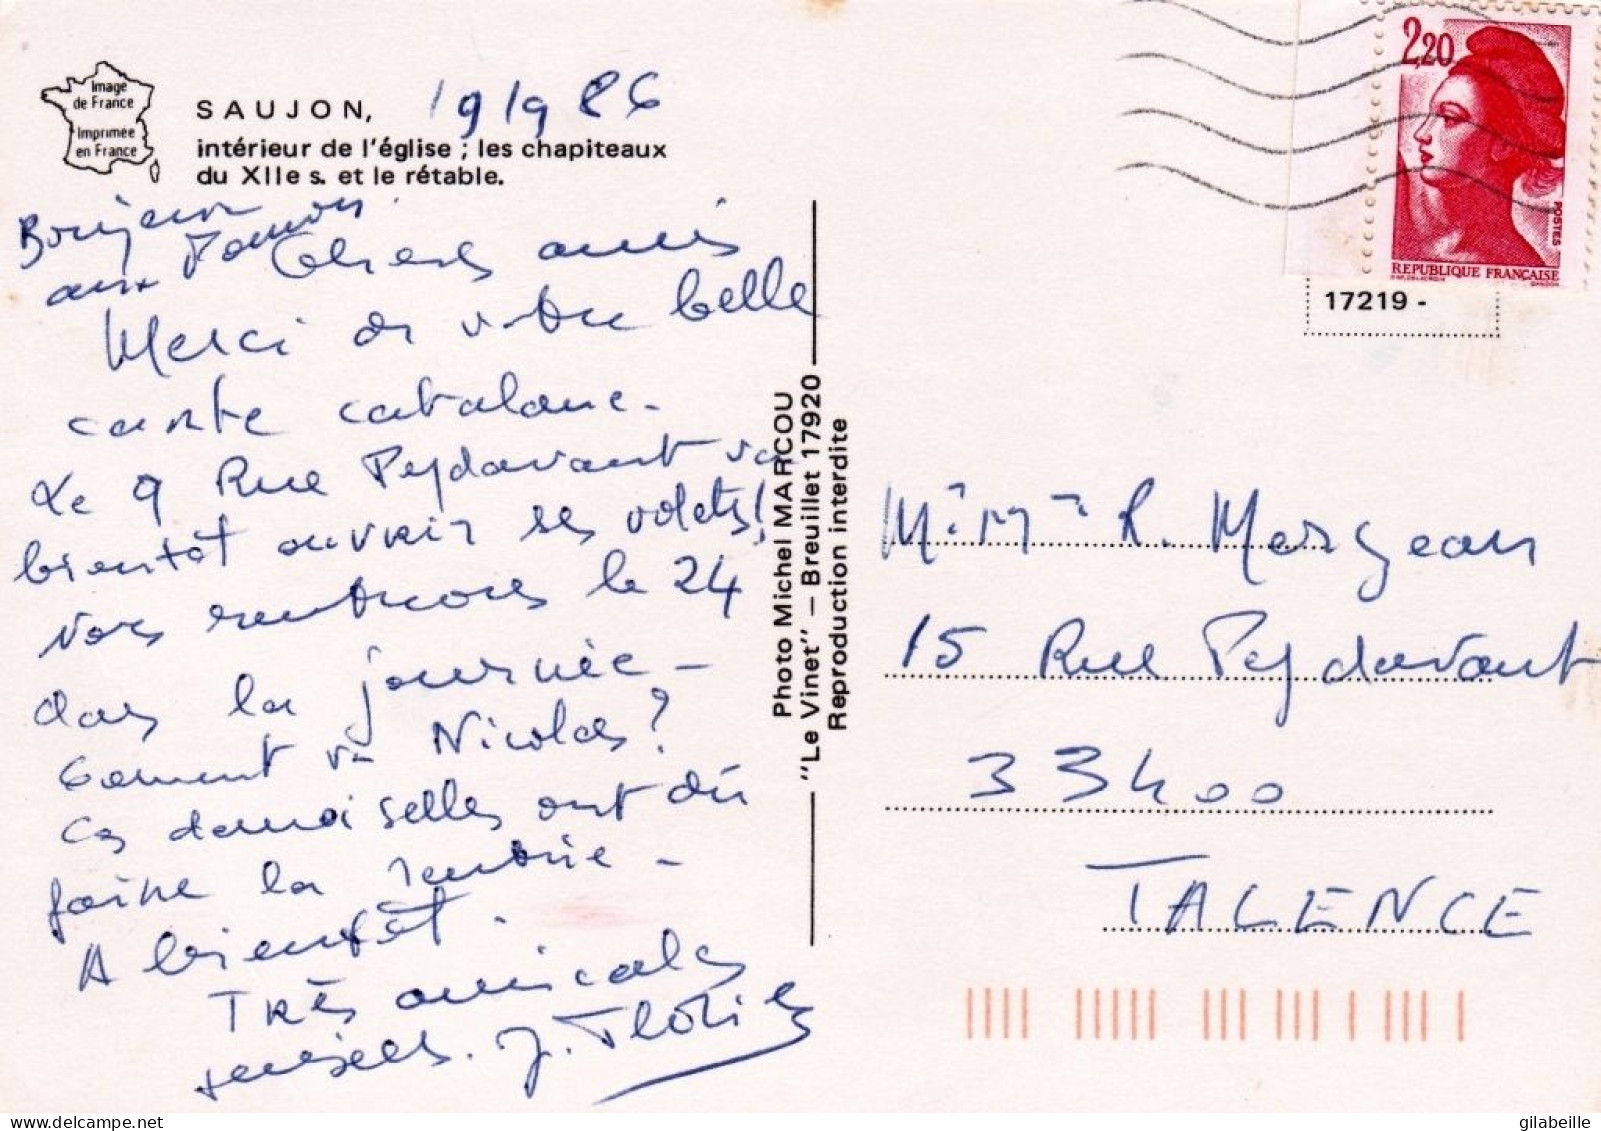 Image
de France
Imprimée
en France
SAUJON, 19/9 86
intérieur de l'église ; les chapiteaux
du XIIe s. et le rétable.
Bonjour
aux
Chers amis
Merci de votre belle
carte catalane.
Le 9 Rue Peydavant va
bientôt ouvrir ses volets!
Nous rentrons le 24
dans la journée -
Comment va Nicolas?
Ces demoiselles ont dû
faire la rentrée -
A bientôt.
Très amicales
pensées. J. Florie
Photo Michel MARCOU
"Le Vinet" - Breuillet 17920
Reproduction interdite
2,20
POSTES
REPUBLIQUE FRANÇAISE
17219 -
Mr Mme R. Morgeau
15 Rue Peydavant
33400
TALENCE
gilabeille